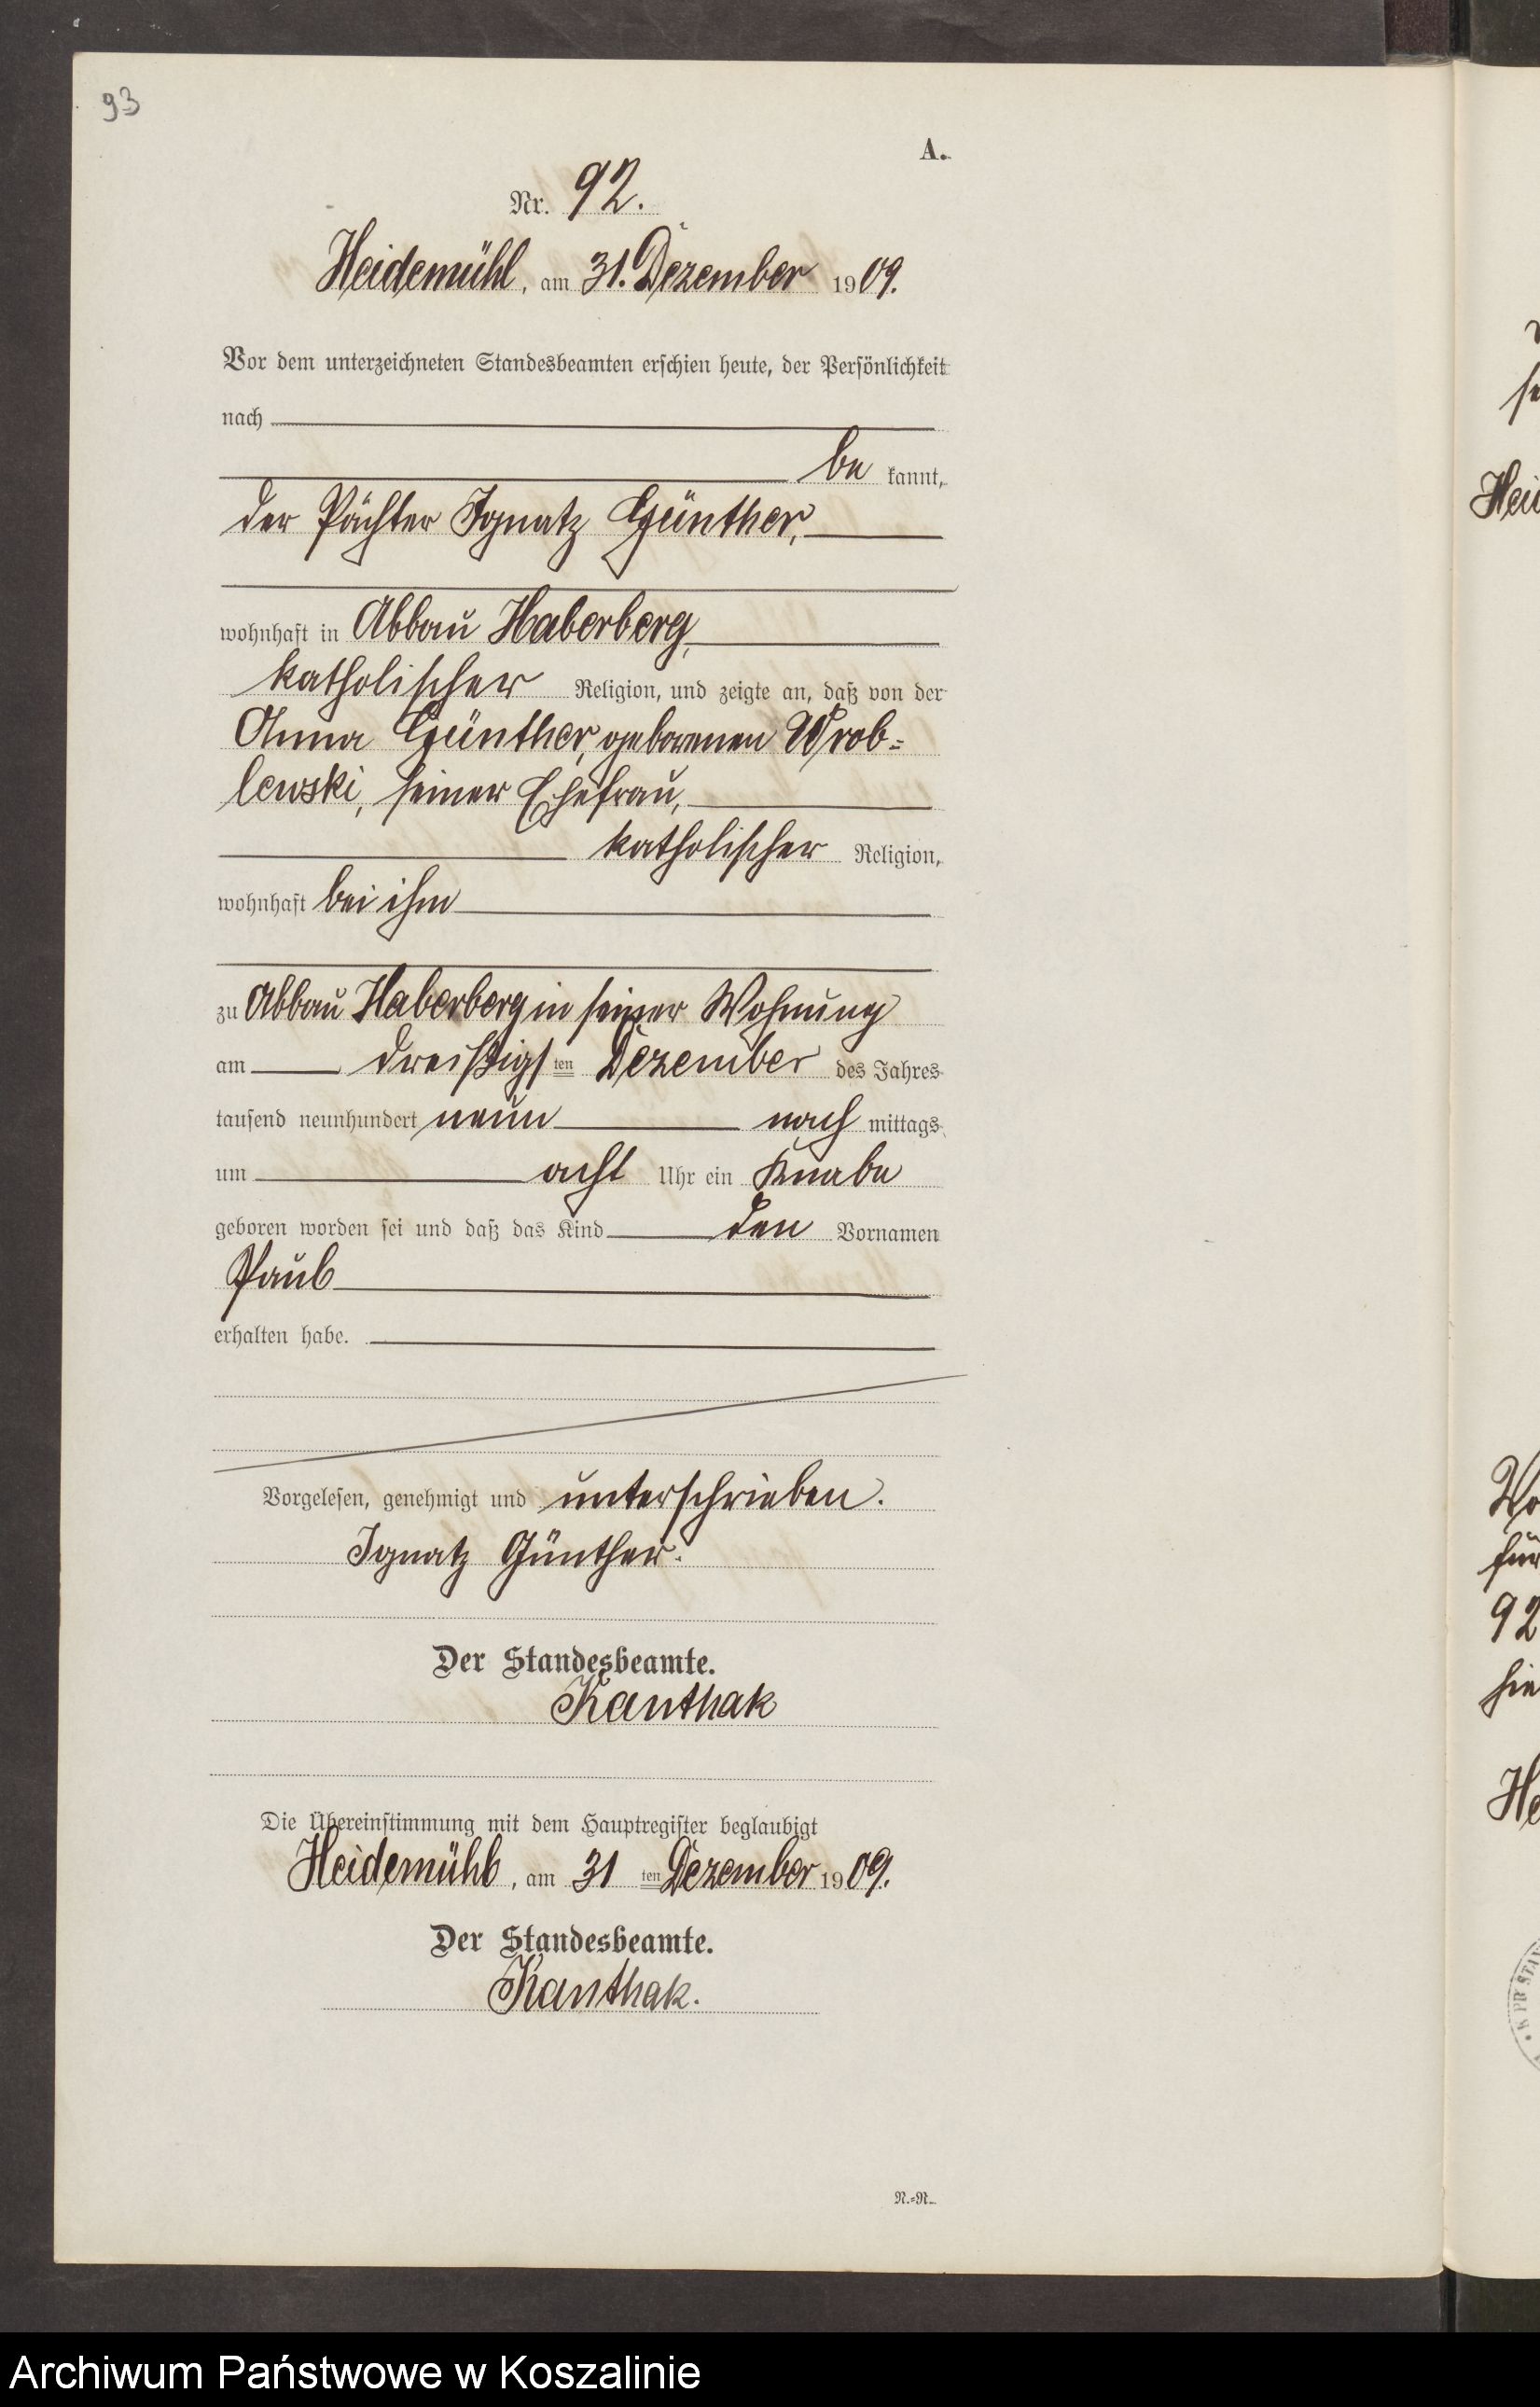 93
A.
Nr. 92.
Heidemühl, am 31. Dezember 1909.
Vor dem unterzeichneten Standesbeamten erschien heute, der Persönlichkeit
nach
be kannt,
der Pächter Ignatz Günther,
wohnhaft in Abbau Haberberg,
katholischer Religion, und zeigte an, daß von der
Anna Günther, geborenen Wrob=
lewski, seiner Ehefrau,
katholischer Religion,
wohnhaft bei ihm
zu Abbau Haberberg in seiner Wohnung
am dreißigsten Dezember des Jahres
tausend neunhundert neun nach mittags
um acht Uhr ein Knabe
geboren worden sei und daß das Kind den Vornamen
Paul
erhalten habe.
Vorgelesen, genehmigt und unterschrieben.
Ignatz Günther.
Der Standesbeamte.
Kanthak
Die Übereinstimmung mit dem Hauptregister beglaubigt
Heidemühl, am 31 ten Dezember 1909.
Der Standesbeamte.
Kanthak.
N.=R.
92
Archiwum Państwowe w Koszalinie